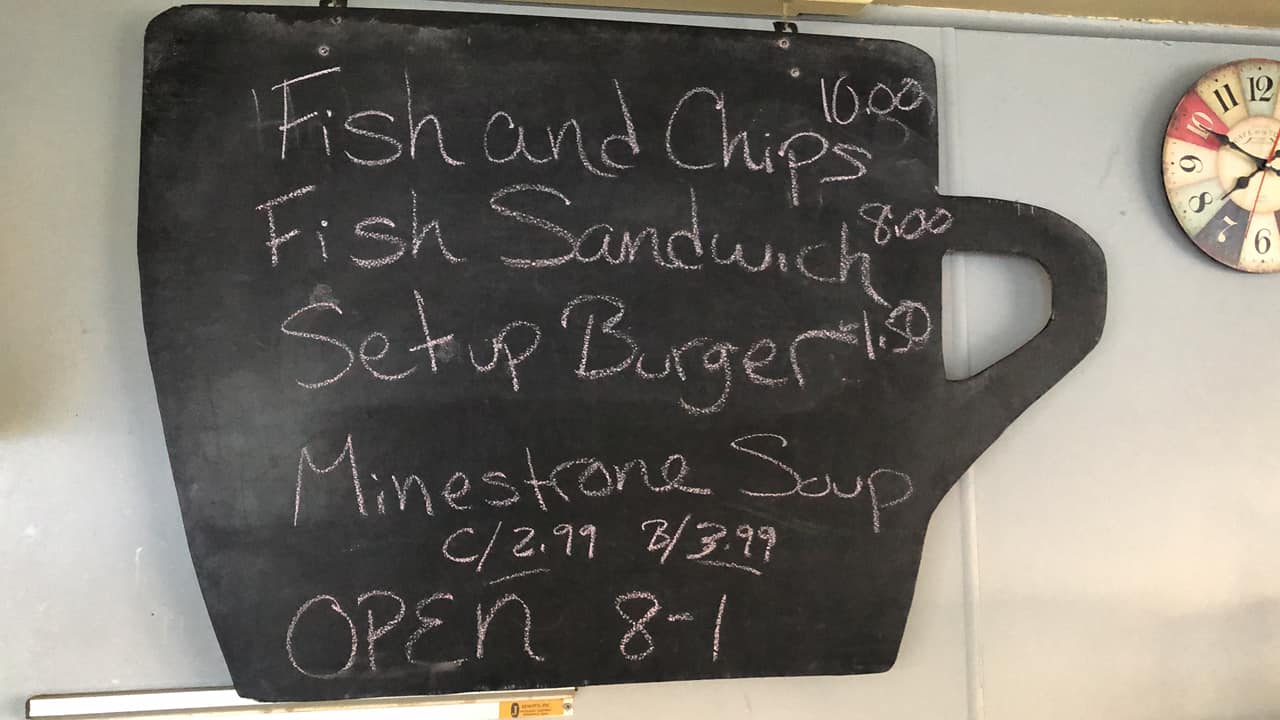 Fish and Chips 10.00
Fish Sandwich 8.00
Setup Burger 1.50
Minestrone Soup
C/2.99 B/3.99
OPEN 8-1
11 12
10
9
8
7 6